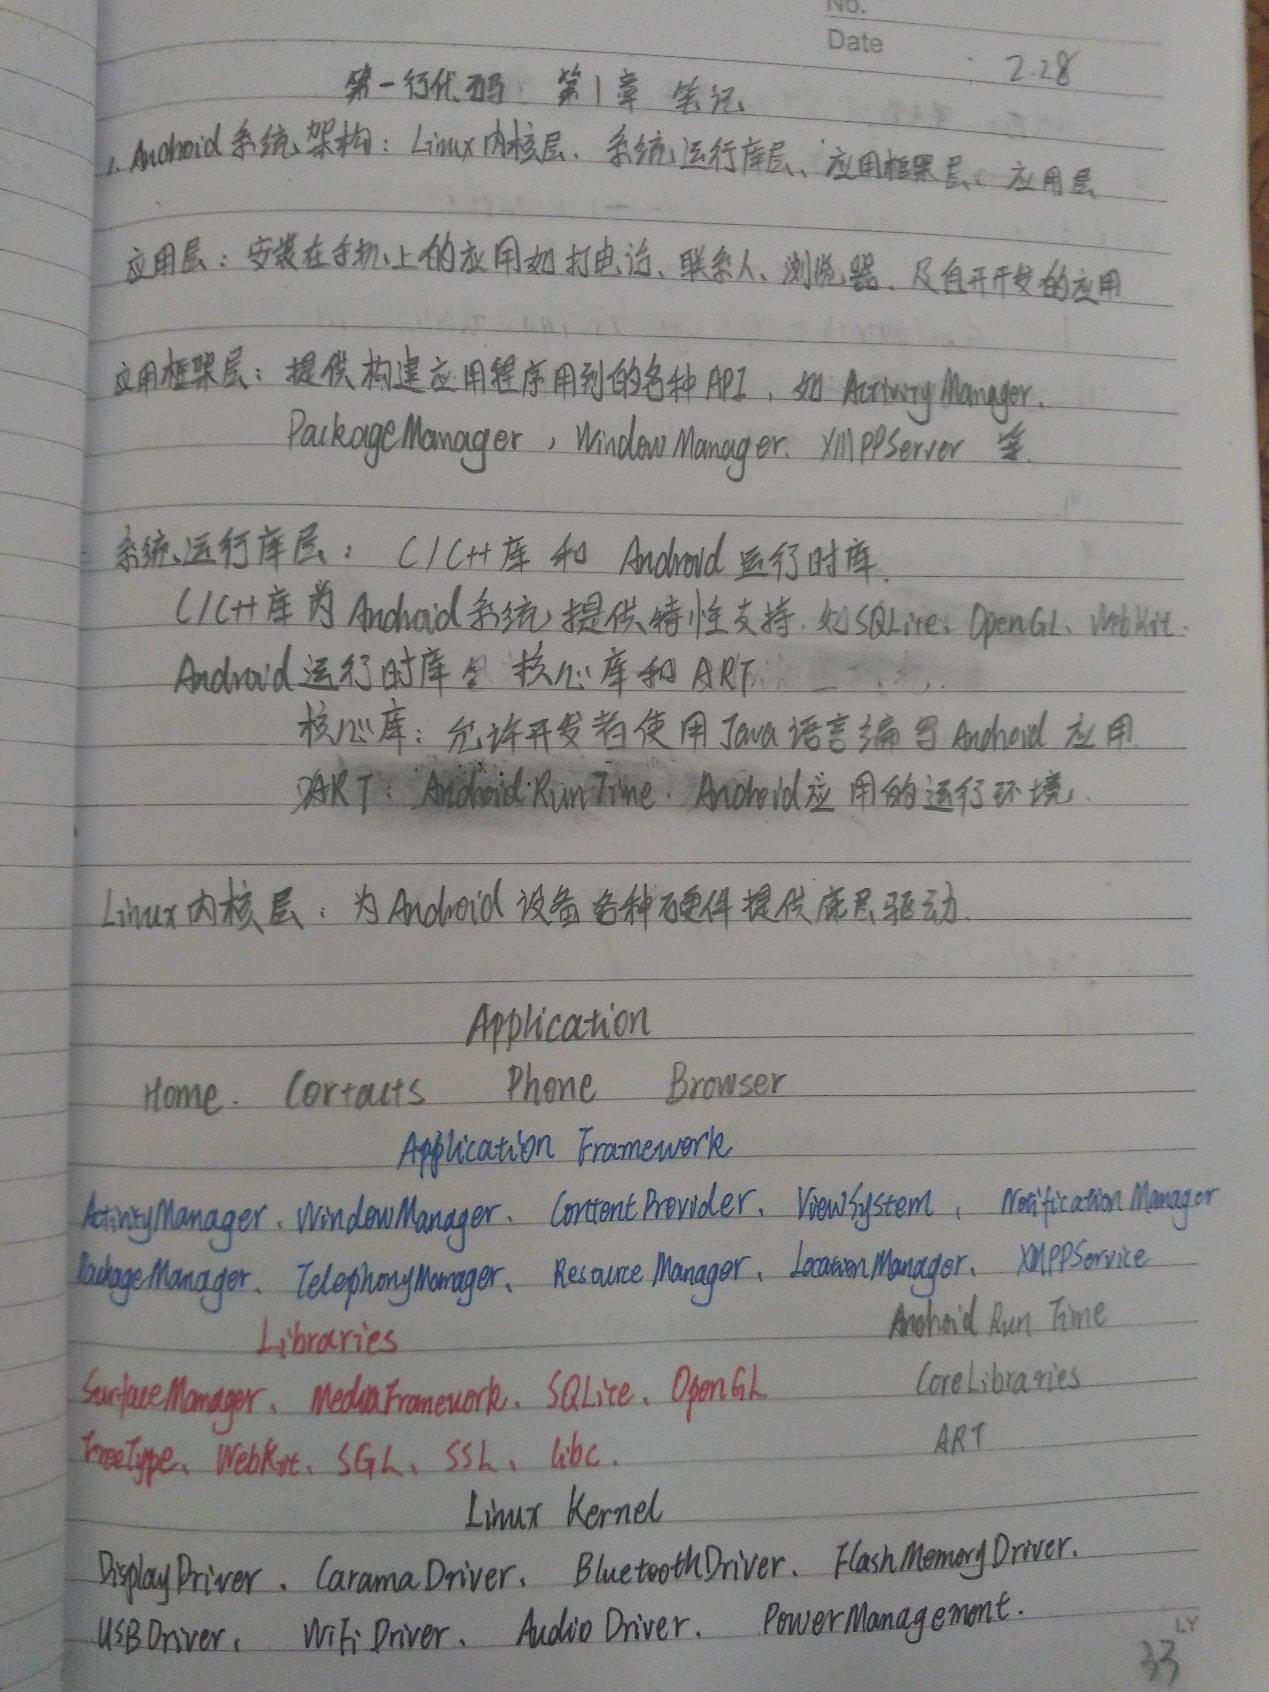 No.
Date 2.28
第一行代码 第1章 笔记
1. Android系统架构：Linux内核层、系统运行库层、应用框架层、应用层
应用层：安装在手机上的应用如打电话、联系人、浏览器、及自开开发的应用
应用框架层：提供构建应用程序用到的各种API，如 ActivityManager、
PackageManager，WindowManager、XMPPServer 等
系统运行库层：C/C++库和 Android运行时库.
C/C++库为Android系统提供特性支持.如SQLite、OpenGL、WebKit.
Android运行时库含 核心库和ART
核心库：允许开发者使用Java语言编写Android应用
ART：Android RunTime. Android应用的运行环境.
Linux内核层：为Android设备各种硬件提供底层驱动.
Application
Home. Contacts Phone Browser
Application Framework
ActivityManager、WindowManager、ContentProvider、ViewSystem、NotificationManager
PackageManager、TelephonyManager、ResourceManager、LocationManager、XMPPService
Libraries Android Run Time
SurfaceManager、MediaFramework、SQLite、OpenGL CoreLibraries
FreeType、WebKit、SGL、SSL、libc. ART
Linux Kernel
DisplayDriver、CaramaDriver、BluetoothDriver、FlashMemoryDriver.
USBDriver、WiFiDriver、AudioDriver、PowerManagement.
LY
33